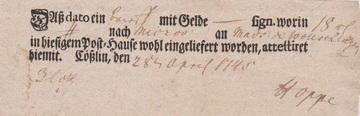 Daß dato ein mit Gelde — sign. worin 18
# nach an
in hiesigem Post-Hause wohl eingeliefert worden, attestiret
hiemit. Cößlin, den 28 April 1745
Hoppe